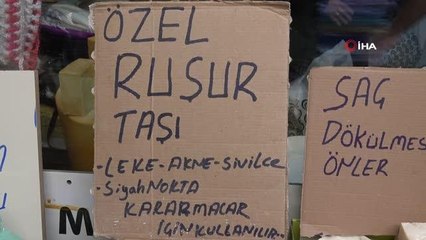 İHA
ÖZEL
RUŞUR
TAŞI
- LEKE - AKNE - SiviLCE
- SiyahNOKTA
KARARMALAR
İÇİN KULLANILIR..
SAÇ
DÖKÜLMES
ÖNLER
M